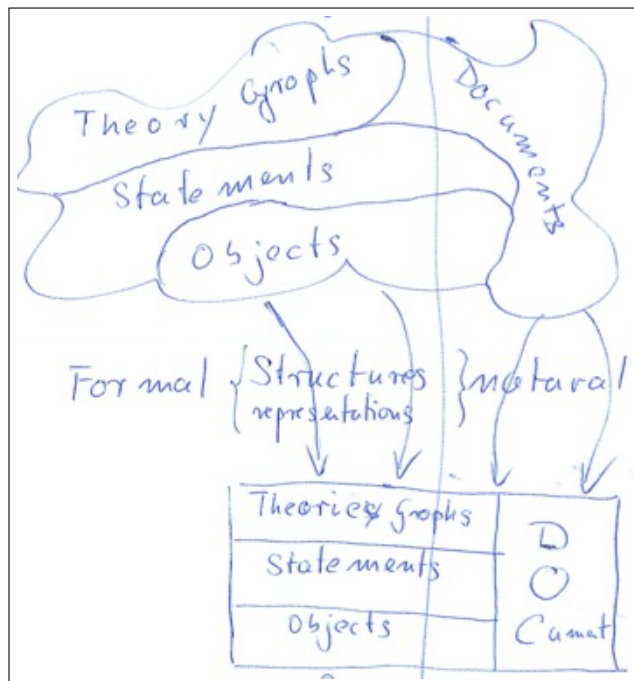 Theory Graphs
Documents
Statements
Objects
Formal { Structures } natural
{ representations
Theories Graphs
Statements
Objects
D
O
Cumat